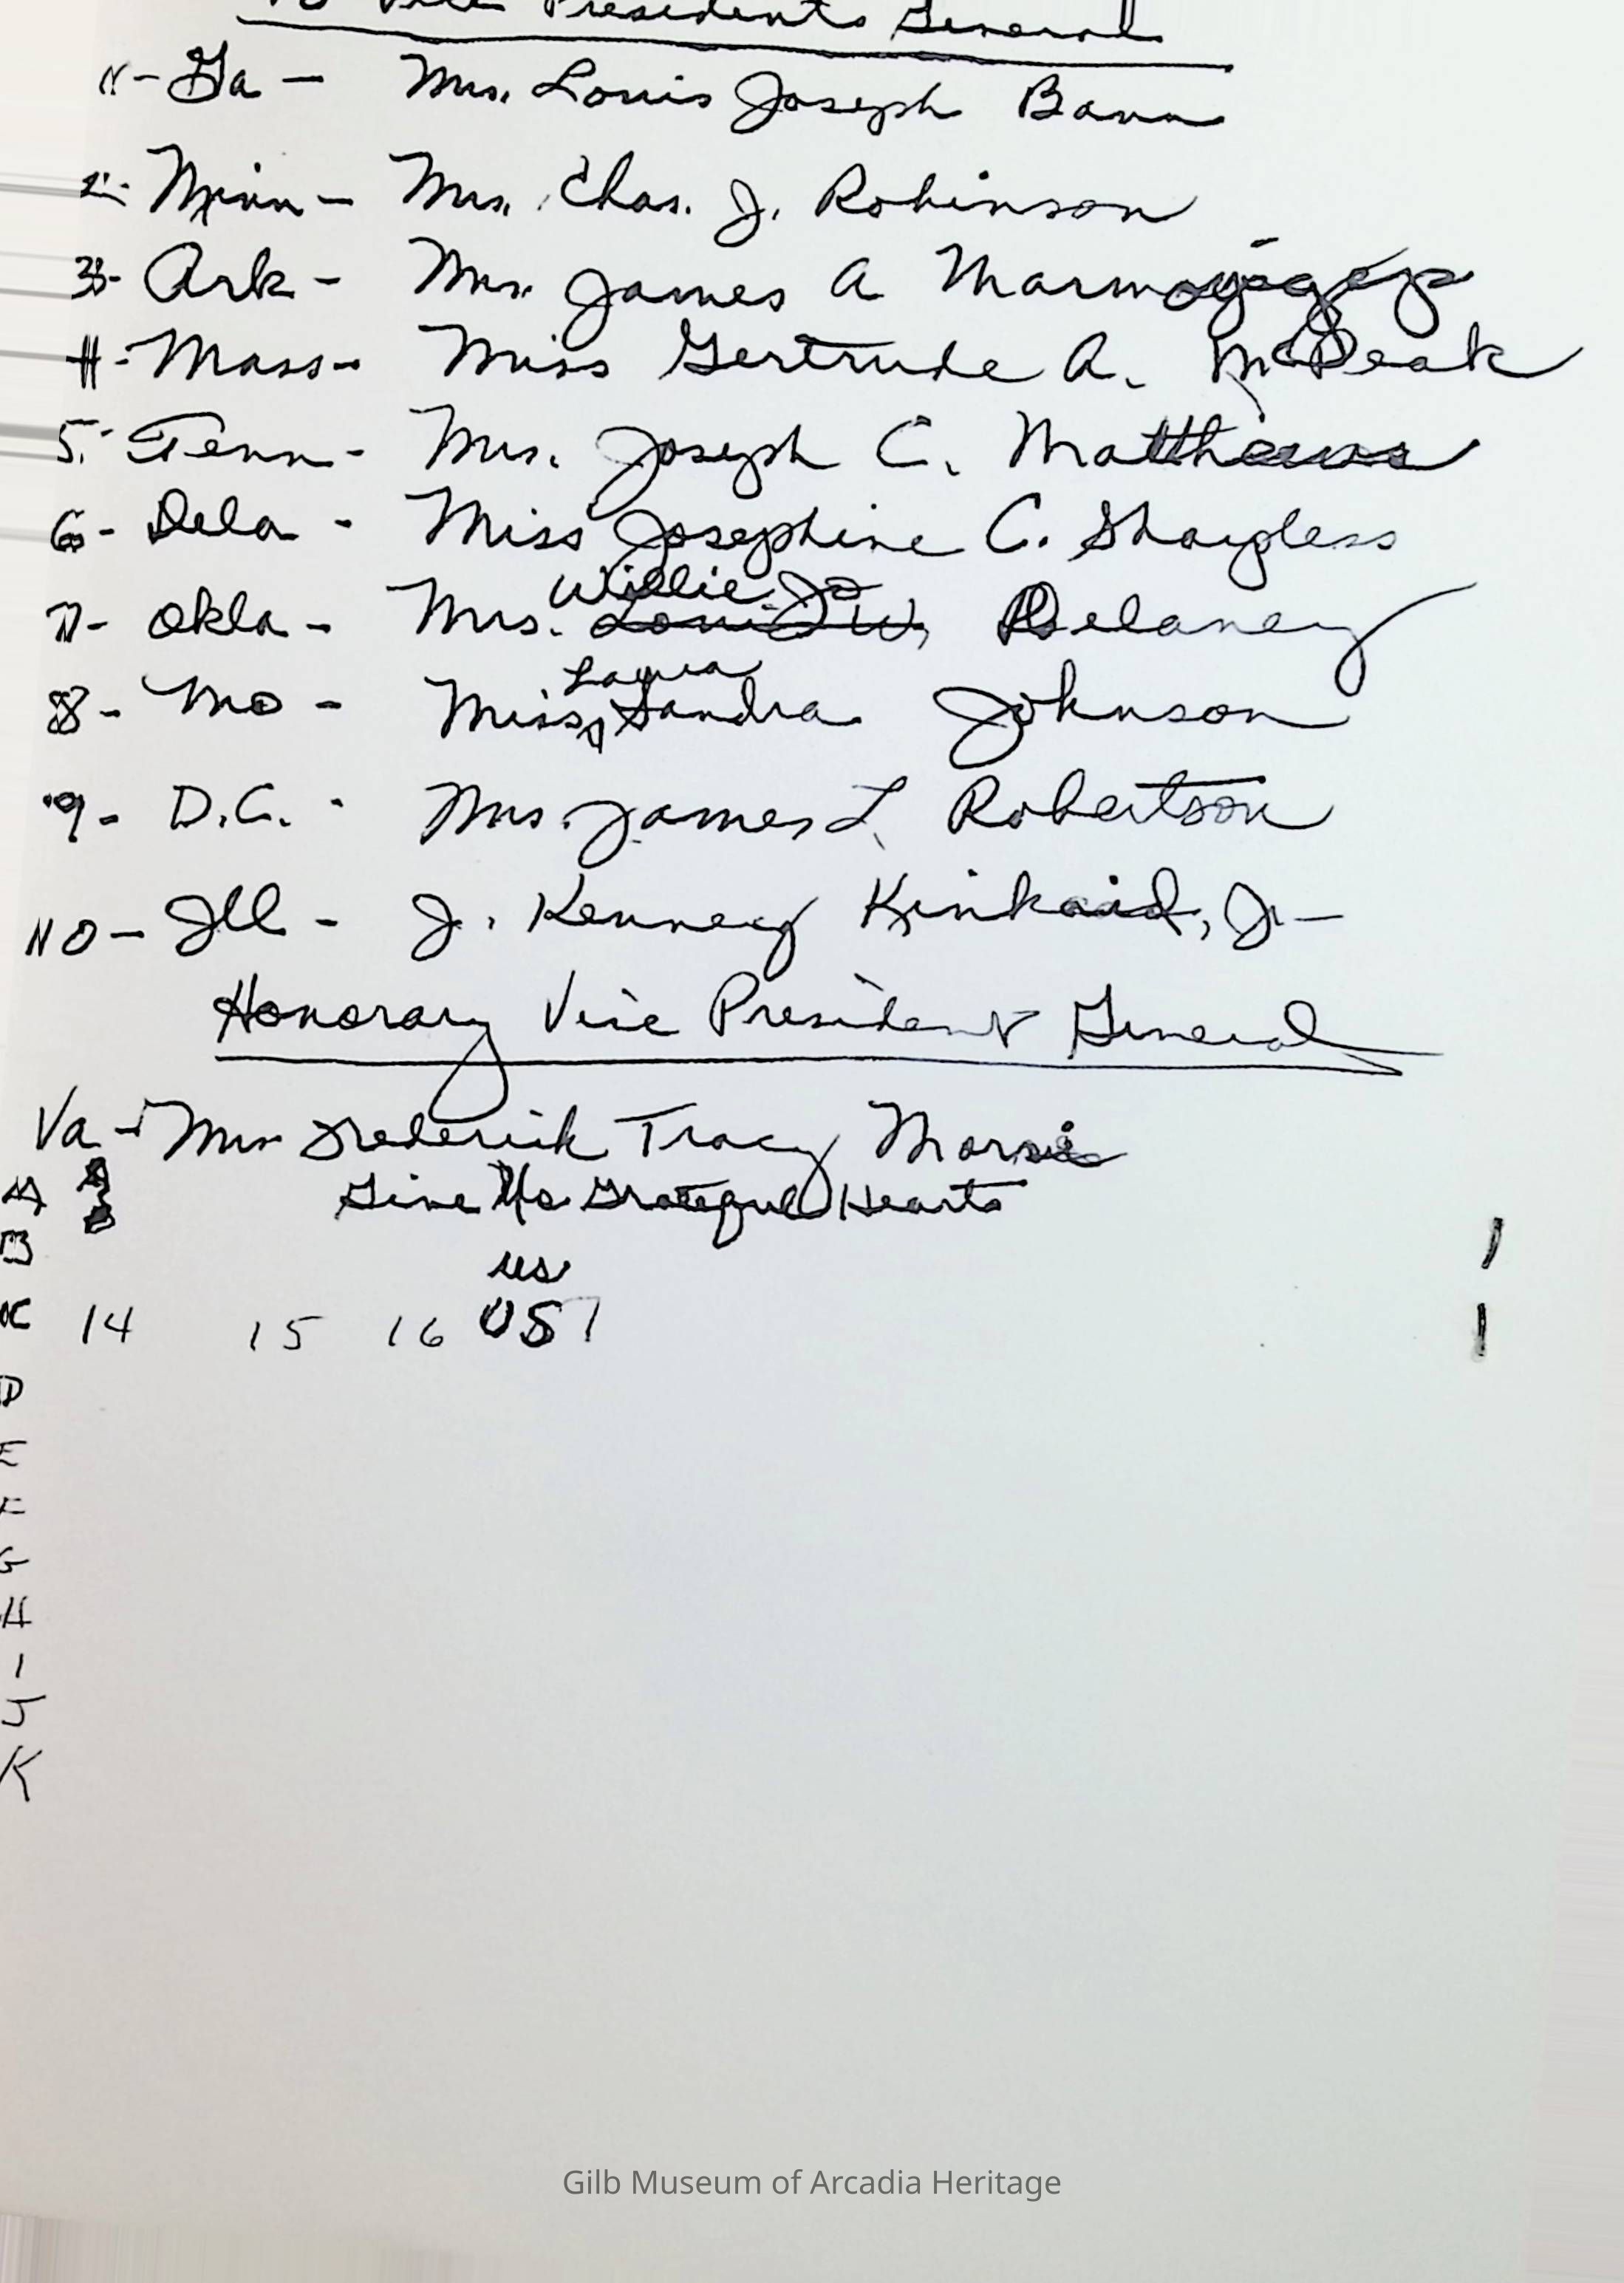 10 Vice Presidents General
1- Ga - Mrs. Louis Joseph Bann
2- Minn - Mrs. Chas. J. Robinson
3- Ark - Mrs. James A
4- Mass - Miss Gertrude A. McPeak
5- Tenn - Mrs. Joseph C. Matthews
6- Dela - Miss Josephine C. Sharpless
Willie Jo
7- Okla - Mrs. Delaney
Laura
8- Mo - Miss Sandra Johnson
9- D.C. - Mrs. James L. Robertson
10- Ill - J. Kenney Kinkaid, Jr-
Honorary Vice President General
Va - Mrs Frederick Tracy Morse
A Give Us Grateful Hearts
B
us
C 14 15 16 US 7
D
E
F
G
H
I
J
K
Gilb Museum of Arcadia Heritage